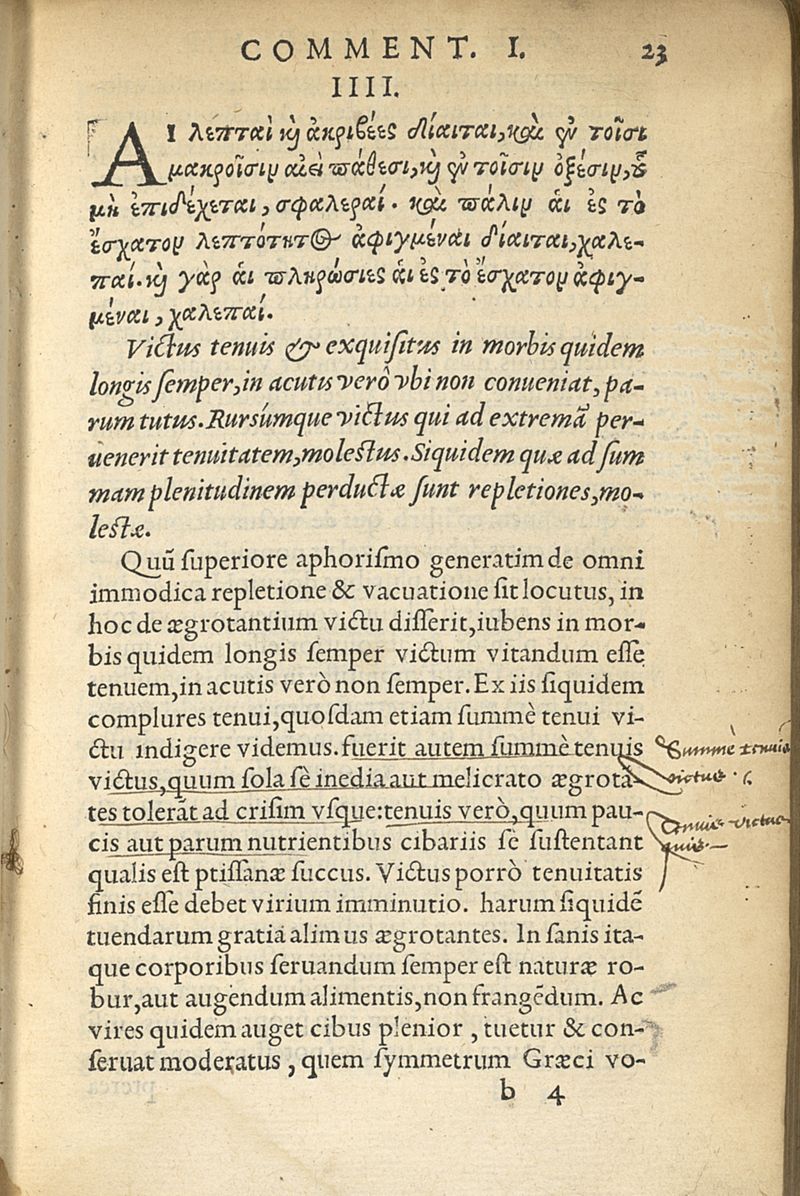 COMMENT. I. 23
IIII.
ΑΙ λεπταὶ κ̀ ἀκριβέες δίαιται, καὶ ἐν τοῖσι
μακροῖσιν αἰεὶ πάθεσι, κ̀ ἐν τοῖσιν ὀξέσιν, οὗ
μὴ ἐπιδέχεται, σφαλεραί. καὶ πάλιν ἁι ἐς τὸ
ἔσχατον λεπτότητος ἀφιγμέναι δίαιται, χαλε-
παί. κ̀ γὰρ ἁι πληρώσιες ἁι ἐς τὸ ἔσχατον ἀφιγ-
μέναι, χαλεπαί.
Victus tenuis & exquiſitus in morbis quidem
longis ſemper, in acutis verò vbi non conueniat, pa-
rum tutus. Rursúmque victus qui ad extremā per-
uenerit tenuitatem, molestus. Siquidem quæ ad ſum
mam plenitudinem perductæ ſunt repletiones, mo-
lestæ.
Quū ſuperiore aphoriſmo generatim de omni
immodica repletione & vacuatione ſit locutus, in
hoc de ægrotantium victu diſſerit, iubens in mor-
bis quidem longis ſemper victum vitandum eſſe
tenuem, in acutis verò non ſemper. Ex iis ſiquidem
complures tenui, quoſdam etiam ſummè tenui vi-
ctu indigere videmus. fuerit autem ſummè tenuis
victus, quum ſola ſè inedia aut melicrato ægrotā-
tes tolerāt ad criſim vſque: tenuis verò, quum pau-
cis aut parum nutrientibus cibariis ſè ſuſtentant
qualis eſt ptiſſanæ ſuccus. Victus porrò tenuitatis
finis eſſe debet virium imminutio. harum ſiquidē
tuendarum gratia alimus ægrotantes. In ſanis ita-
que corporibus ſeruandum ſemper eſt naturæ ro-
bur, aut augendum alimentis, non frangēdum. Ac
vires quidem auget cibus plenior, tuetur & con-
ſeruat moderatus, quem ſymmetrum Græci vo-
b 4
Summè tenuis
victus.
tenuis victus
quis